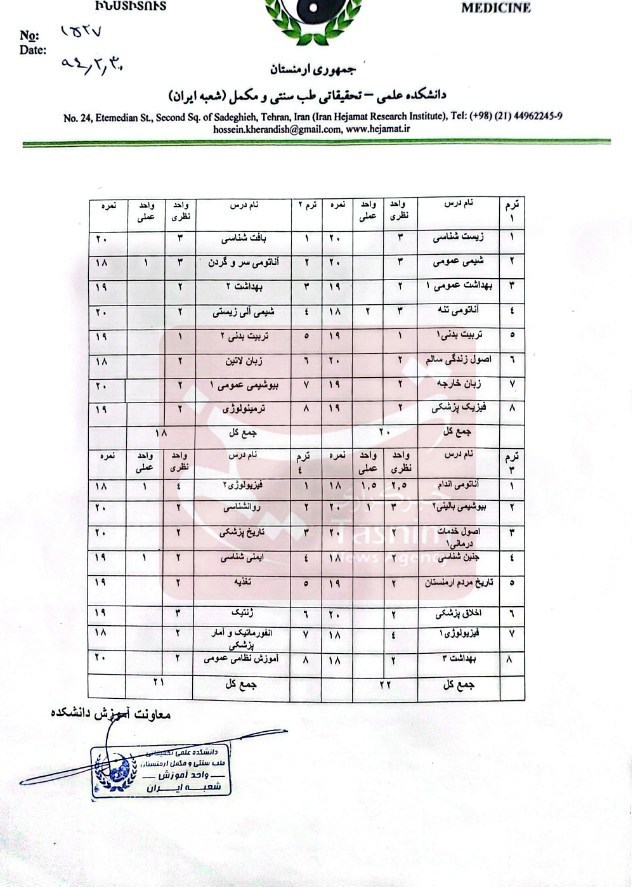 ԻՆՍՏԻՏՈՒՏ
MEDICINE
No: ۱۵۲۷
Date: ۹۴,۲,۳۰
جمهوری ارمنستان
دانشکده علمی – تحقیقاتی طب سنتی و مکمل (شعبه ایران)
No. 24, Etemedian St., Second Sq. of Sadeghieh, Tehran, Iran (Iran Hejamat Research Institute), Tel: (+98) (21) 44962245-9
hossein.kherandish@gmail.com, www.hejamat.ir
ترم ۱ نام درس واحد نظری واحد عملی نمره ترم ۲ نام درس واحد نظری واحد عملی نمره
۱ زیست شناسی ۳ ۲۰ ۱ بافت شناسی ۳ ۲۰
۲ شیمی عمومی ۳ ۲۰ ۲ آناتومی سر و گردن ۳ ۱ ۱۸
۳ بهداشت عمومی ۱ ۲ ۱۹ ۳ بهداشت ۲ ۲ ۱۹
۴ آناتومی تنه ۳ ۲ ۱۸ ۴ شیمی آلی زیستی ۲ ۲۰
۵ تربیت بدنی۱ ۱ ۱۹ ۵ تربیت بدنی ۲ ۱ ۱۹
۶ اصول زندگی سالم ۲ ۲۰ ۶ زبان لاتین ۲ ۱۸
۷ زبان خارجه ۲ ۱۹ ۷ بیوشیمی عمومی ۱ ۲ ۲۰
۸ فیزیک پزشکی ۲ ۱۹ ۸ ترمینولوژی ۲ ۱۹
جمع کل ۲۰ جمع کل ۱۸
ترم ۳ نام درس واحد نظری واحد عملی نمره ترم ۴ نام درس واحد نظری واحد عملی نمره
۱ آناتومی اندام ۲,۵ ۱,۵ ۱۸ ۱ فیزیولوژی۲ ۴ ۱ ۱۸
۲ بیوشیمی بالینی۲ ۳ ۱ ۲۰ ۲ روانشناسی ۲ ۲۰
۳ اصول خدمات درمانی۱ ۲۰ ۳ تاریخ پزشکی ۲ ۲۰
۴ جنین شناسی ۲ ۱۸ ۴ ایمنی شناسی ۲ ۱ ۱۹
۵ تاریخ مردم ارمنستان ۲ ۱۹ ۵ تغذیه ۲ ۱۹
۶ اخلاق پزشکی ۲ ۲۰ ۶ ژنتیک ۳ ۱۹
۷ فیزیولوژی۱ ۴ ۱۸ ۷ انفورماتیک و آمار پزشکی ۲ ۱۸
۸ بهداشت ۳ ۲ ۱۸ ۸ آموزش نظامی عمومی ۲ ۲۰
جمع کل ۲۲ جمع کل ۲۱
خبرگزاری
تسنیم
Tasnim
News Agency
معاونت آموزش دانشکده
دانشکده علمی تحقیقاتی
طب سنتی و مکمل ارمنستان
واحد آموزش
شعبه ایران